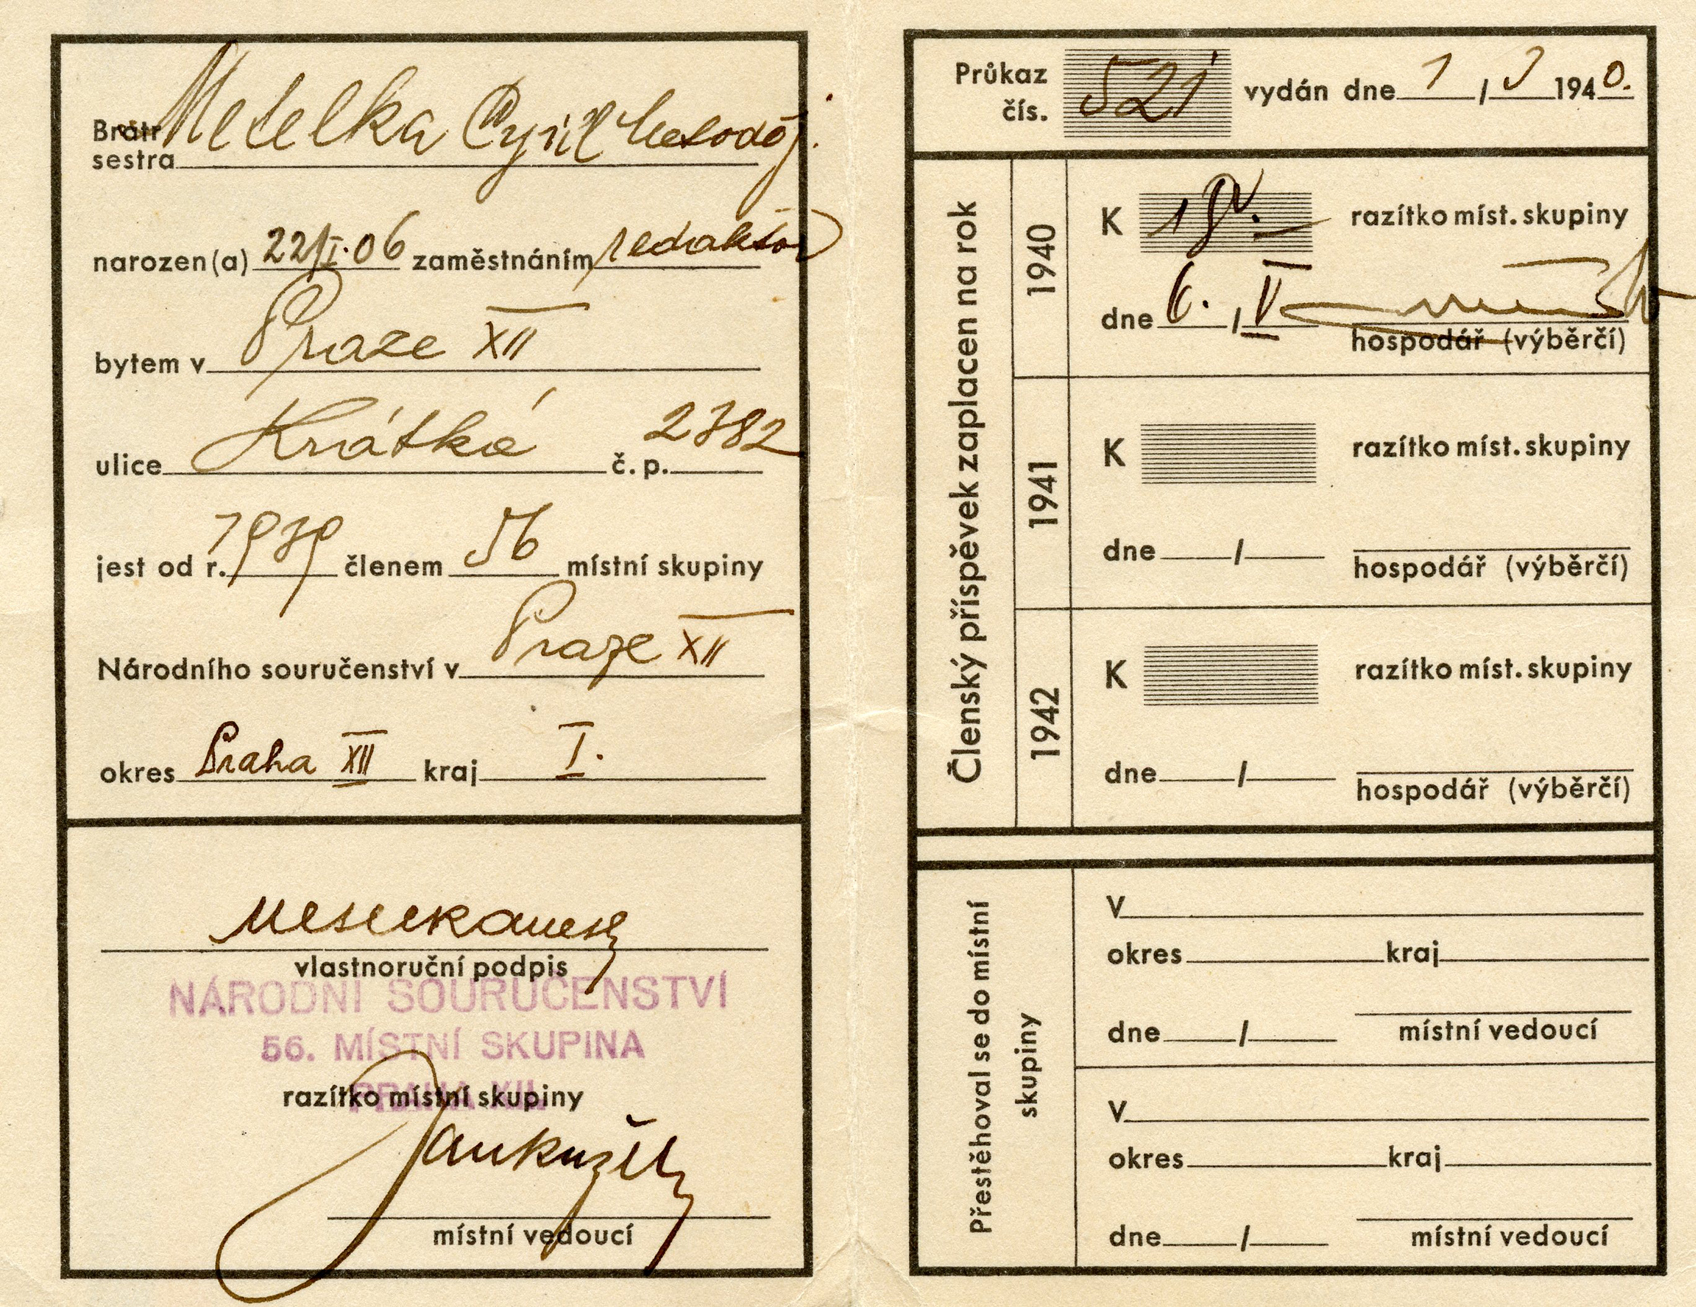 Bratr
sestra Metelka Cyril Metoděj.
narozen(a) 22/I.06 zaměstnáním redaktor
bytem v Praze XII
ulice Krátká č. p. 2782
jest od r. 1939 členem 56 místní skupiny
Národního souručenství v Praze XII
okres Praha XII kraj I.
vlastnoruční podpis
NÁRODNÍ SOURUČENSTVÍ
56. MÍSTNÍ SKUPINA
PRAHA XII.
razítko místní skupiny
místní vedoucí
Průkaz
čís. 521 vydán dne 1 / 1940.
Členský příspěvek zaplacen na rok
1940
K razítko míst. skupiny
dne 6. / V
hospodář (výběrčí)
1941
K razítko míst. skupiny
dne /
hospodář (výběrčí)
1942
K razítko míst. skupiny
dne /
hospodář (výběrčí)
Přestěhoval se do místní
skupiny
V
okres kraj
dne /
místní vedoucí
V
okres kraj
dne /
místní vedoucí